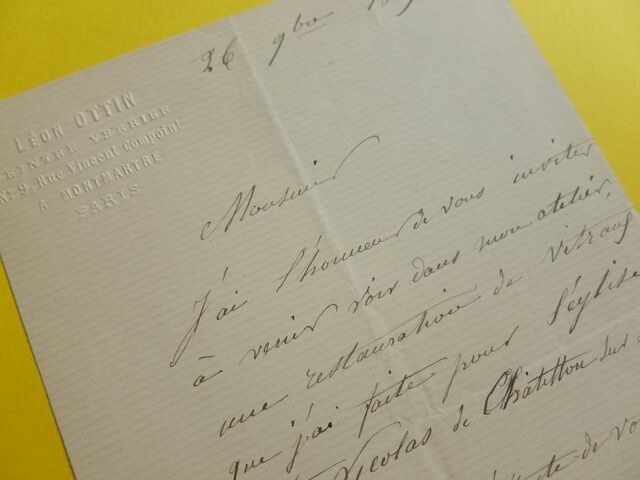 26 9bre
LÉON OTTIN
PEINTRE VERRIER
No 9, Rue Vincent Compoint
A MONTMARTRE
PARIS
Monsieur
J'ai l'honneur de vous inviter
à venir voir dans mon atelier,
une restauration de vitraux
que j'ai faite pour l'église
Nicolas de Châtillon sur
de vo